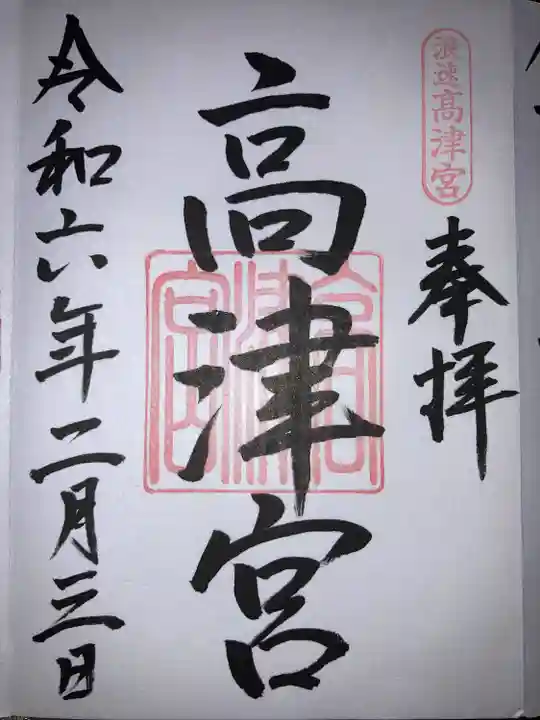 浪速高津宮
奉拝
高津宮
高津宮
令和六年二月三日